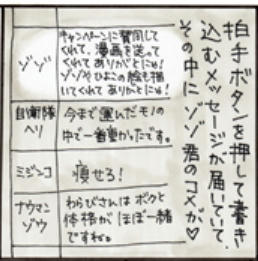 拍手ボタンを押して書き
込むメッセージが届いていて、
その中にゾゾ君のコメが♡
ゾゾ
キャンペーンに賛同して
くれて、漫画を送って
くれて ありがとにゅ!
ゾゾやひよこの絵も描
いてくれて ありがとにゅ!
自衛隊
ヘリ
今まで運んだモノの
中で一番重かったです。
ミジンコ
痩せろ!
ナウマン
ゾウ
わらびさんは ボクと
体格が ほぼ一緒
ですね。